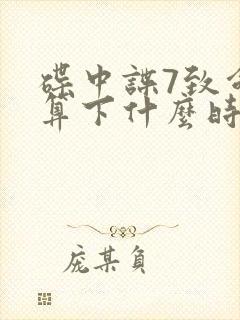 碟中諜7致命
算下什麼時
庞某負